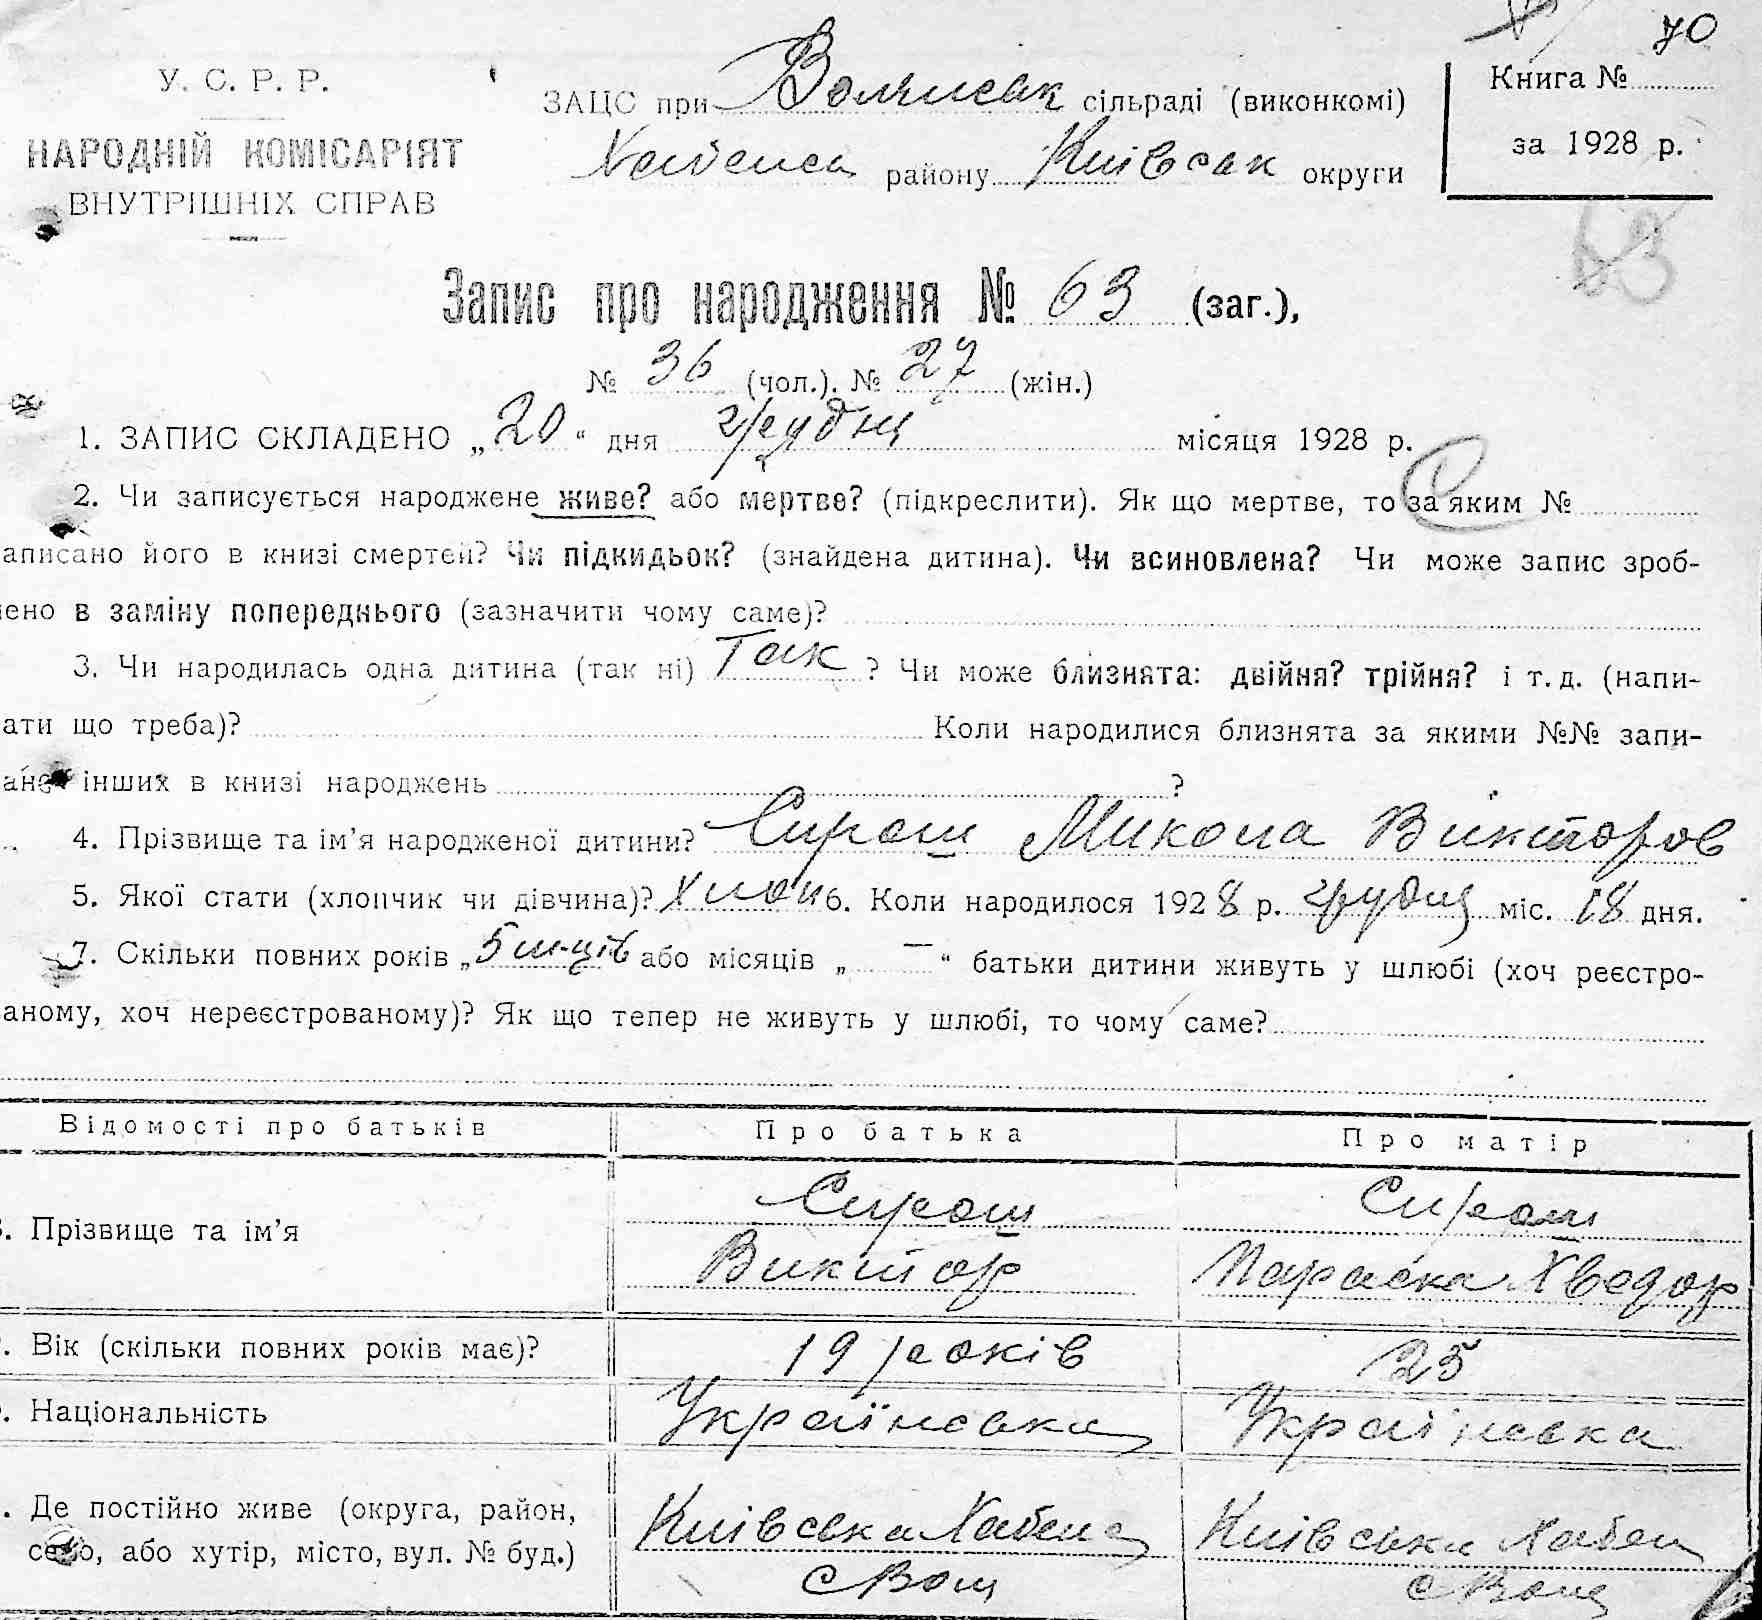 70
У. С. Р. Р.
НАРОДНІЙ КОМІСАРІЯТ
ВНУТРІШНІХ СПРАВ
ЗАЦС при сільраді (виконкомі)
району Київськ округи
Книга №
за 1928 р.
63
Запис про народження № 63 (заг.),
№ 36 (чол.). № 27 (жін.)
1. ЗАПИС СКЛАДЕНО „20“ дня грудня місяця 1928 р.
2. Чи записується народжене живе? або мертве? (підкреслити). Як що мертве, то за яким №
аписано його в книзі смертей? Чи підкидьок? (знайдена дитина). Чи всиновлена? Чи може запис зроб-
лено в заміну попереднього (зазначити чому саме)?
3. Чи народилась одна дитина (так ні) Так ? Чи може близнята: двійня? трійня? і т. д. (напи-
ати що треба)? Коли народилися близнята за якими №№ запи-
ано інших в книзі народжень ?
4. Прізвище та ім’я народженої дитини? Сирош Микола Викторов
5. Якої стати (хлопчик чи дівчина)? Хлоп 6. Коли народилося 1928 р. грудня міс. 18 дня.
7. Скільки повних років „5 м-ців або місяців „ — “ батьки дитини живуть у шлюбі (хоч реєстро-
аному, хоч нереєстрованому)? Як що тепер не живуть у шлюбі, то чому саме?
Відомості про батьків Про батька Про матір
Сирош Сирош
8. Прізвище та ім’я
Виктор Параска Хведор
9. Вік (скільки повних років має)? 19 років 25
Національність Українська Українська
Де постійно живе (округа, район, Київська Хабенс Київська Хабен
село, або хутір, місто, вул. № буд.)